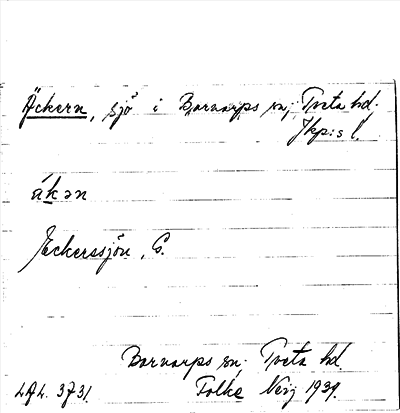 Äckern, sjö i Barnarps sn; Tveta hd.
Jkp:s l.
äkən
Eckerssjön, G.
Barnarps sn; Tveta hd.
LAL. 3731. Folke Neij 1939.